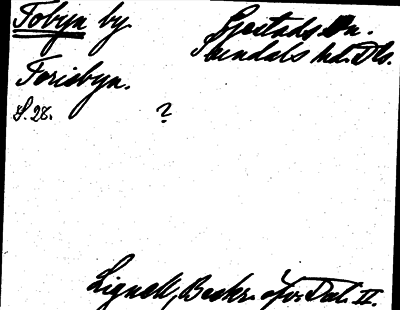 Tobyn by. Gestads sn.
Sundals hd. Dls.
Torisbyn.
S. 28. ?
Lignell, Beskr. öfv. Dal. II.